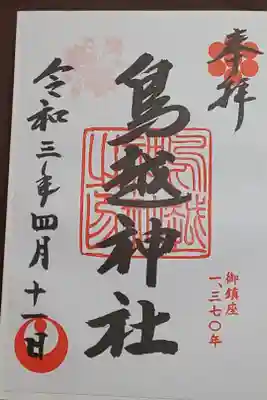 奉拝
御鎮座
一、三七〇年
鳥越神社
令和三年四月十一日